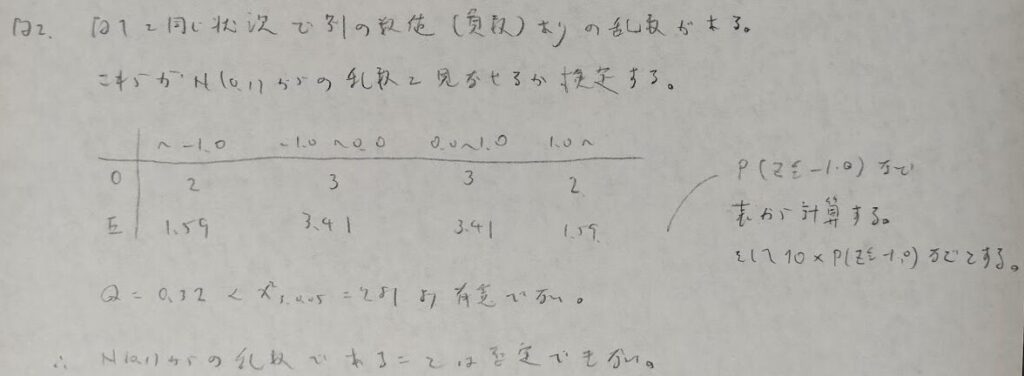 問2. 問1と同じ状況で別の数値(負数)ありの乱数がある。
これらが N(0,1)からの乱数と見なせるか検定する。
~-1.0 -1.0~0.0 0.0~1.0 1.0~
O 2 3 3 2
E 1.59 3.41 3.41 1.59
P(Z≦-1.0)などで
表から計算する。
そして10×P(Z≦-1.0)などとする。
Q = 0.32 < χ²3,0.05 = 7.81 より 有意でない。
∴ N(0,1)からの乱数であることは否定できない。